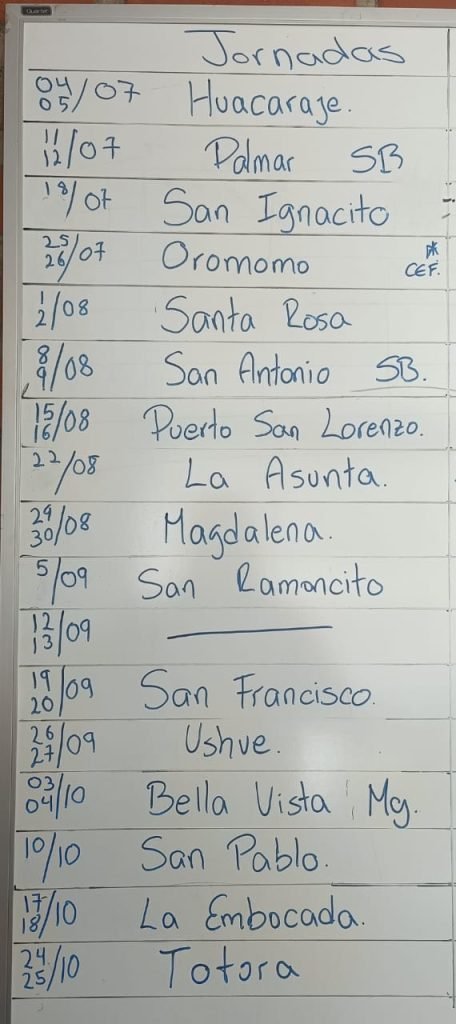 Quartet
Jornadas
04
05/07 Huacaraje.
11
12/07 Palmar SB
18/07 San Ignacito
25
26/07 Oromomo * CEF.
1
2/08 Santa Rosa
8
9/08 San Antonio SB.
15
16/08 Puerto San Lorenzo.
22/08 La Asunta.
29
30/08 Magdalena.
5/09 San Ramoncito
12
13/09 —
19
20/09 San Francisco.
26
27/09 Ushve.
03
04/10 Bella Vista Mg.
10/10 San Pablo.
17
18/10 La Embocada.
24
25/10 Totora